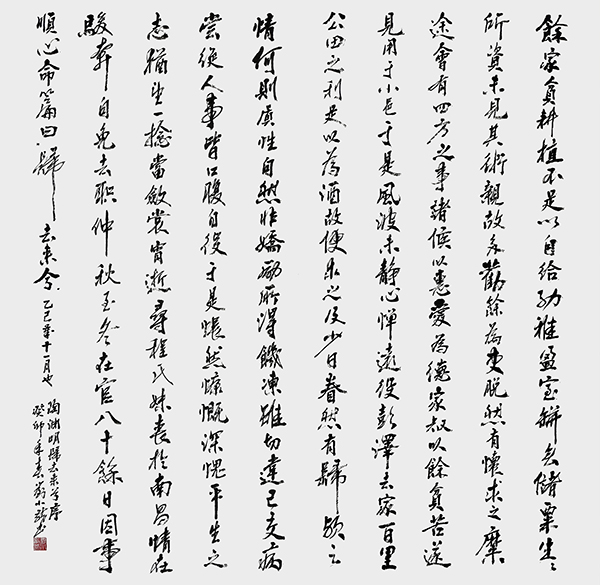 餘家貧耕植不足以自給幼稚盈室缾无儲粟生〻
所資未見其術親故多勸餘為吏脫然有懷求之靡
途會有四方之事諸侯以惠愛為德家叔以餘貧苦遂
見用于小邑于是風波未靜心憚遠役彭澤去家百里
公田之利足以為酒故便求之及少日眷然有歸歟之
情何則質性自然非矯勵所得饑凍雖切違己交病
嘗從人事皆口腹自役于是悵然慷慨深愧平生之
志猶望一稔當斂裳宵逝尋程氏妹喪於南昌情在
駿奔自免去职仲秋至冬在官八十餘日因事
順心命篇曰歸去來兮乙巳年十一月也
陶淵明歸去來兮序
癸卯年春